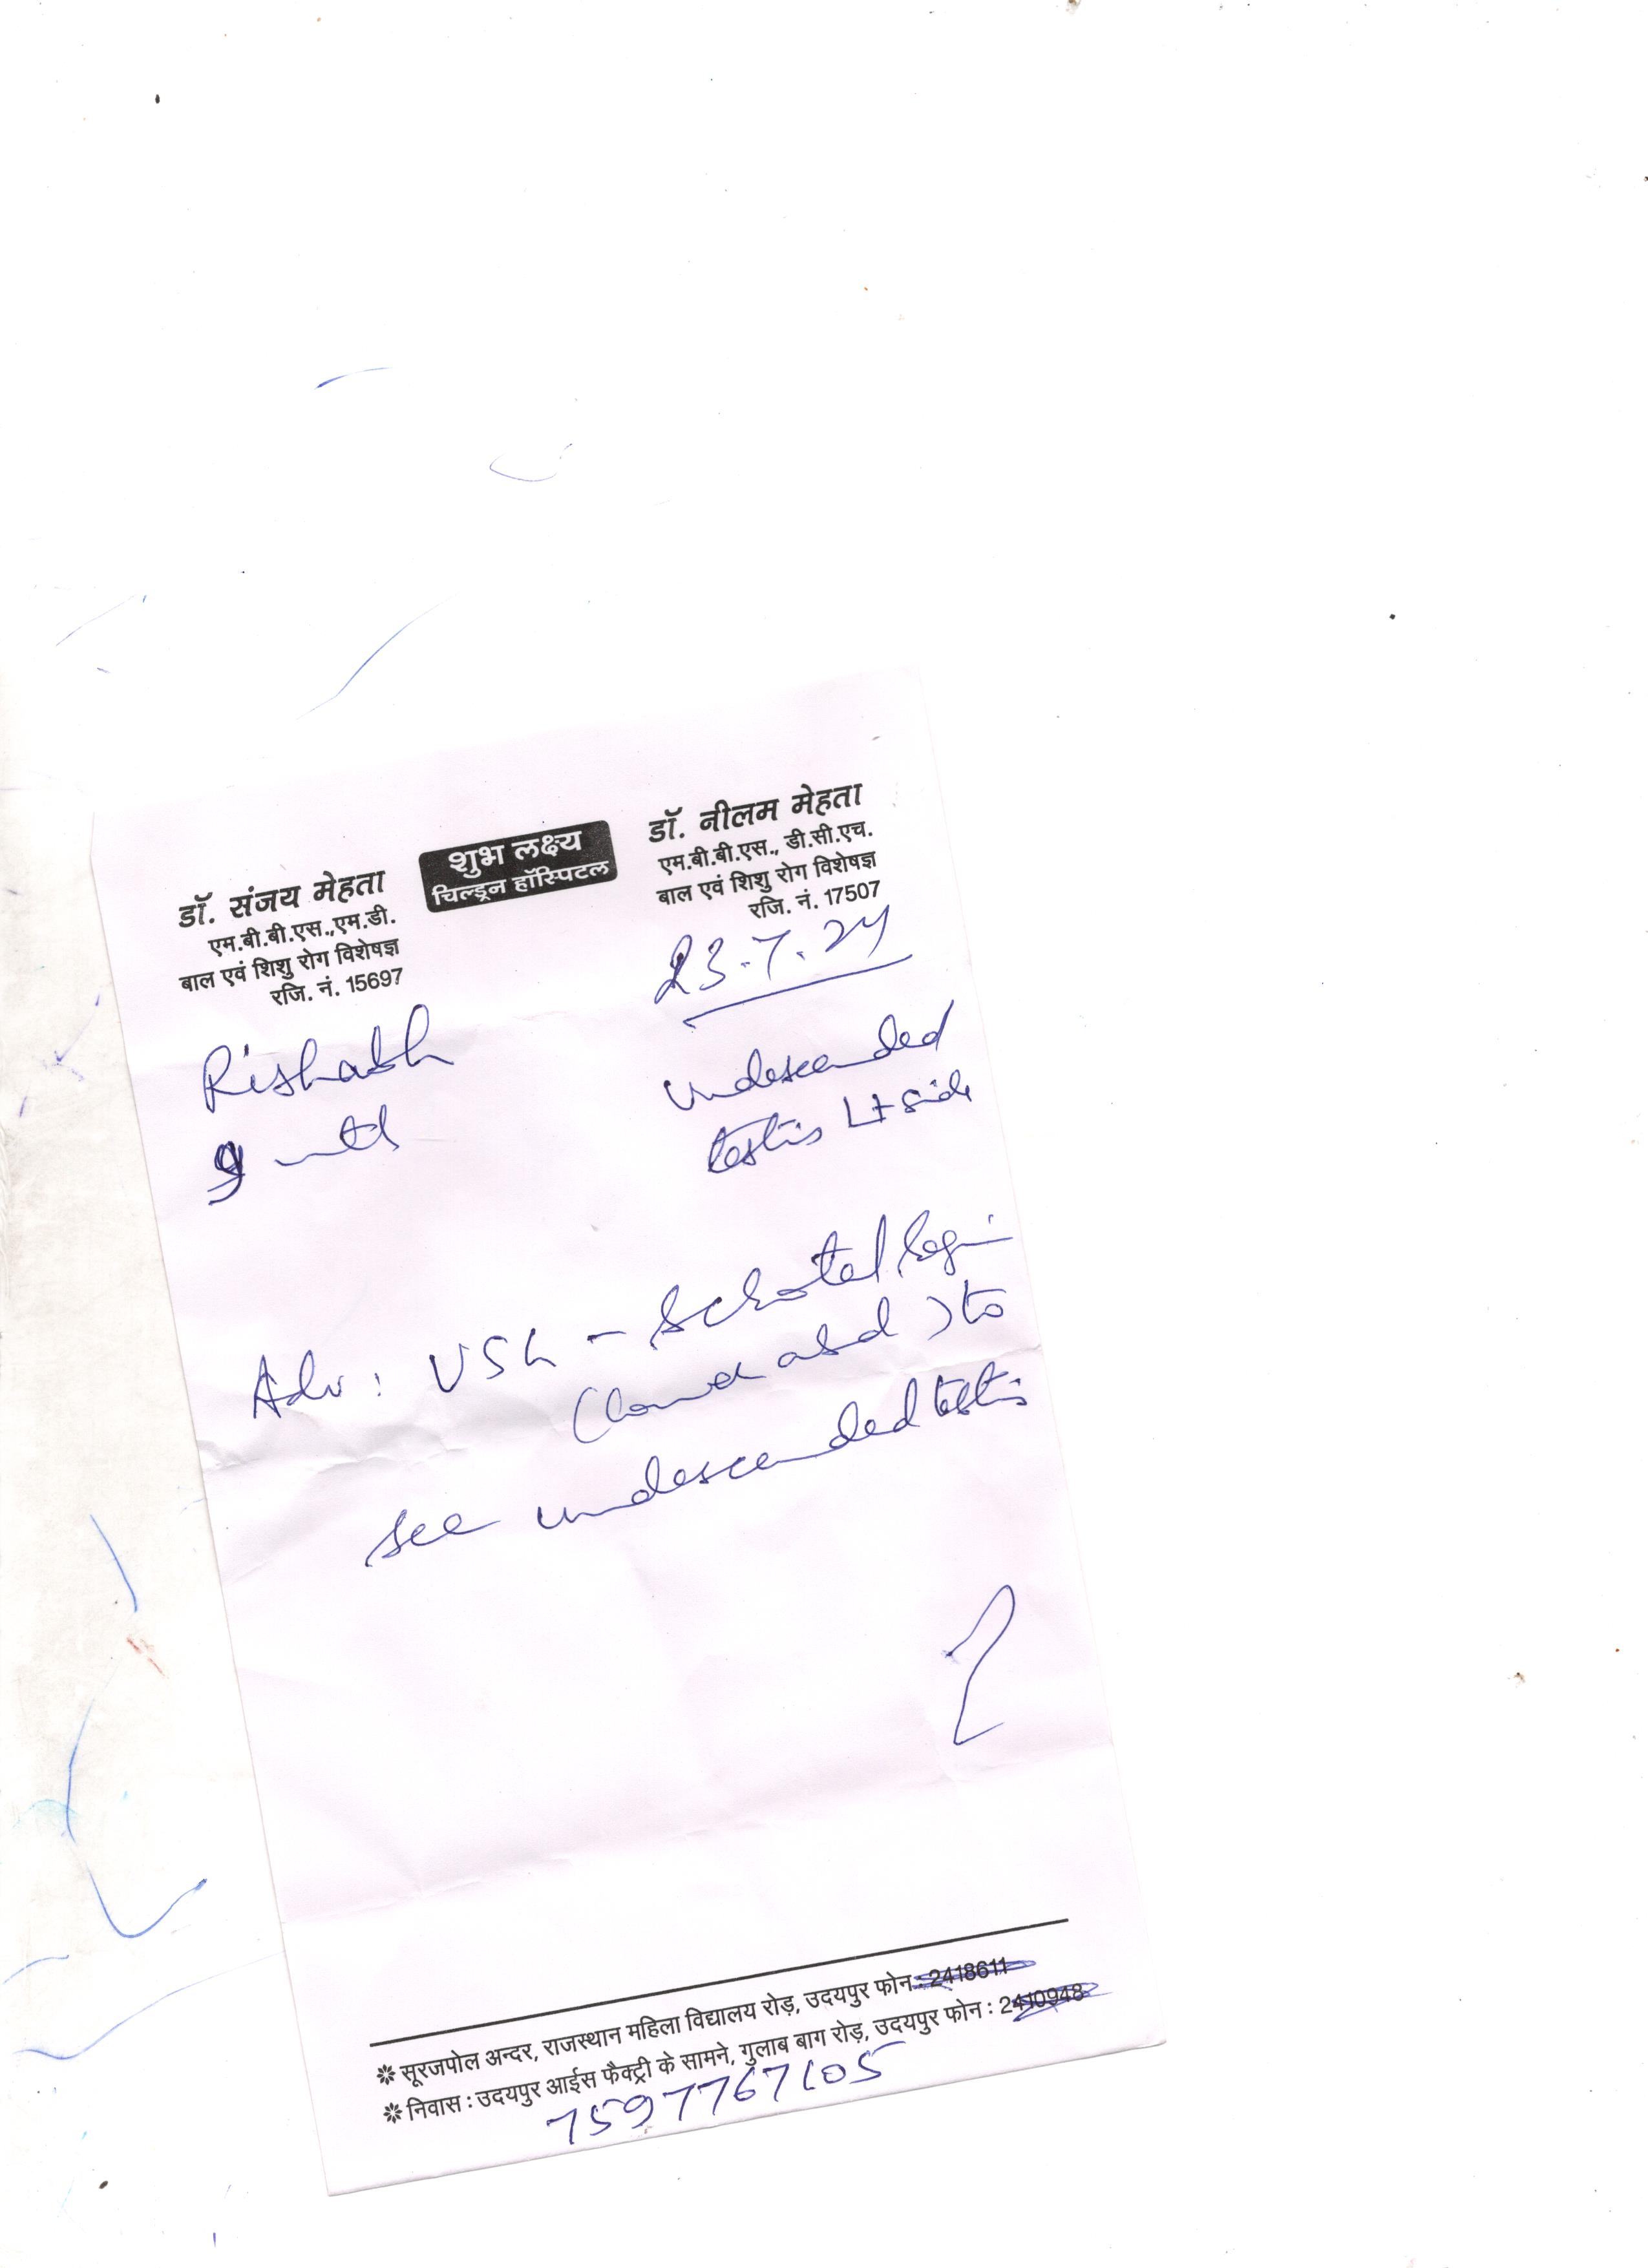 शुभ लक्ष्य
चिल्ड्रन हॉस्पिटल
डॉ. संजय मेहता
एम.बी.बी.एस.,एम.डी.
बाल एवं शिशु रोग विशेषज्ञ
रजि. नं. 15697
डॉ. नीलम मेहता
एम.बी.बी.एस., डी.सी.एच.
बाल एवं शिशु रोग विशेषज्ञ
रजि. नं. 17507
23.7.24
Rishabh
9 mth
undescended
testis Lt side
Adv: USG - Scrotal Region
(Lower abd) to
see undescended testis
❋ सूरजपोल अन्दर, राजस्थान महिला विद्यालय रोड़, उदयपुर फोन : 2418611
❋ निवास : उदयपुर आईस फैक्ट्री के सामने, गुलाब बाग रोड़, उदयपुर फोन : 2410948
7597767105